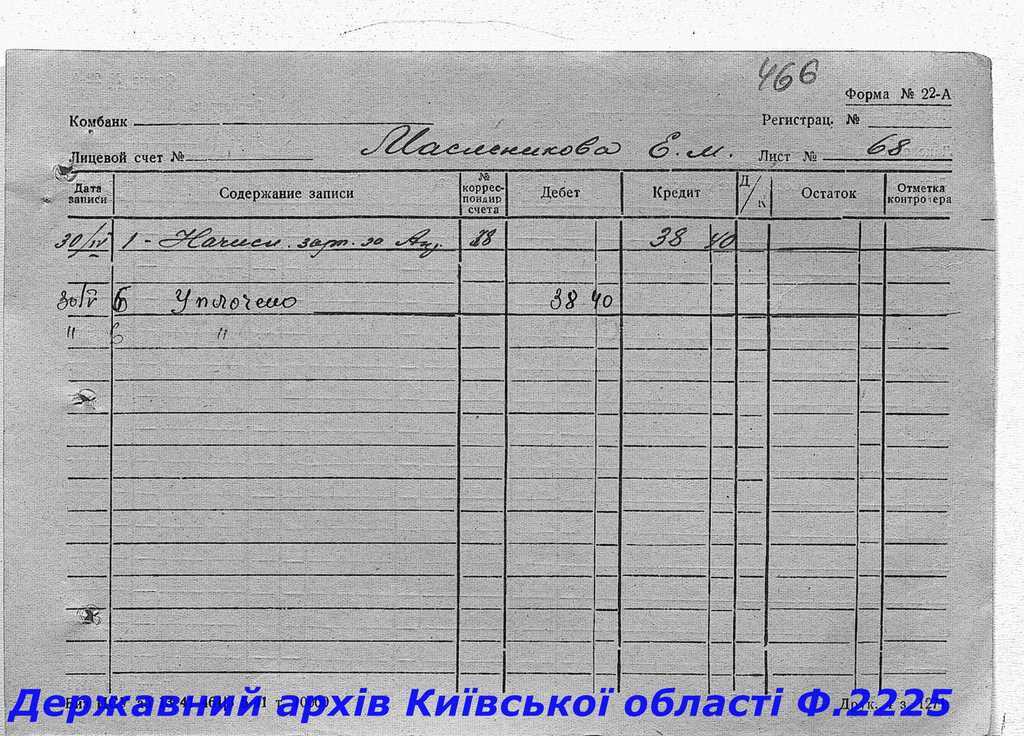 466
Форма № 22-А
Комбанк
Регистрац. №
Лицевой счет № Масленикова Е. М. Лист № 68
Дата записи Содержание записи № коррес-пондир счета Дебет Кредит Д/К Остаток Отметка контролера
30/IV 1 - Начисл. зарп. за Апр. 88 38 40
30/IV 6 Уплочено 38 40
" 6 "
Державний архів Київської області Ф.2225